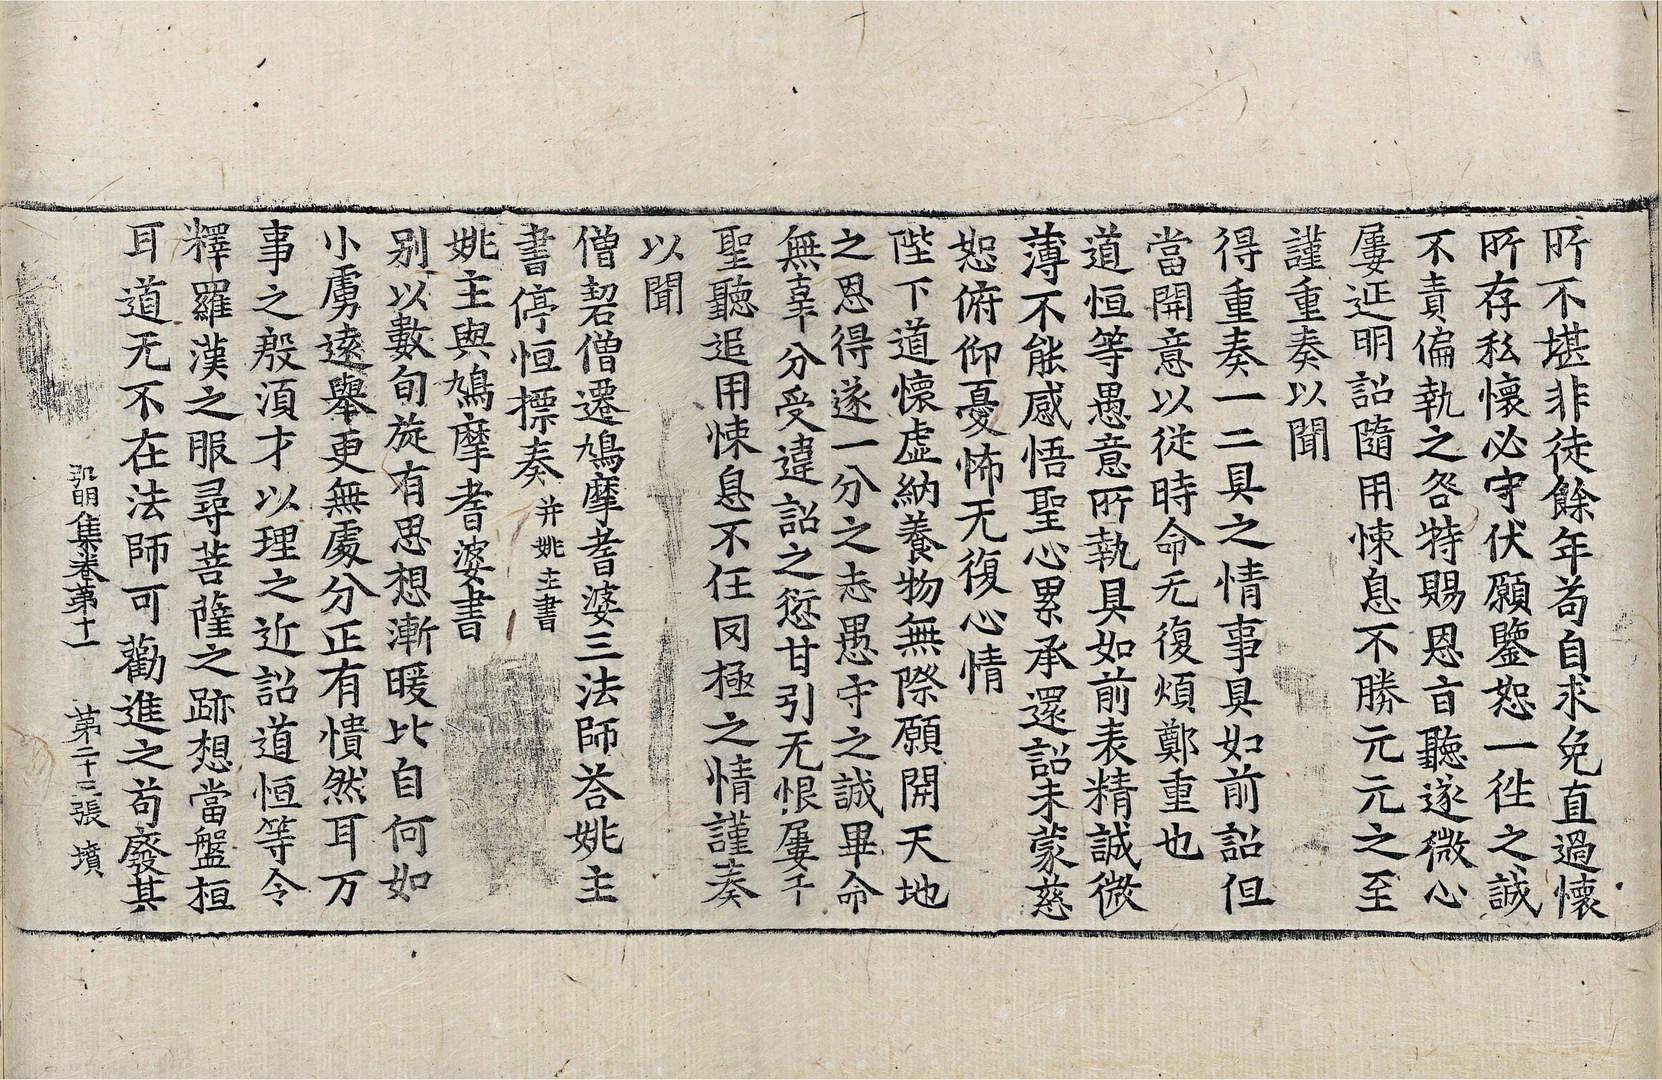 所不堪非徒餘年苟自求免直過懷
所存私懷必守伏願鑒恕一徃之誠
不責偏執之咎特賜恩旨聽遂微心
屢延明詔隨用悚息不勝元元之至
謹重奏以聞
得重奏一二具之情事具如前詔但
當開意以従時命无復煩鄭重也
道恒等愚意所執具如前表精誠微
薄不能感悟聖心累承還詔未蒙慈
恕俯仰憂怖无復心情
陛下道懷虛納養物無際願開天地
之恩得遂一分之志愚守之誠畢命
無辜分受違詔之愆甘引无恨屢干
聖聽追用悚息不任罔極之情謹奏
以聞
僧䂮僧遷鳩摩耆婆三法師荅姚主
書停恒標奏 并姚主書
姚主與鳩摩耆婆書
别以數旬旋有思想漸暖比自何如
小虜遠舉更無處分正有憒然耳万
事之殷須才以理之近詔道恒等令
釋羅漢之服尋菩薩之跡想當盤桓
耳道无不在法師可勸進之苟廢其
弘明集卷第十一 第二十三張 墳